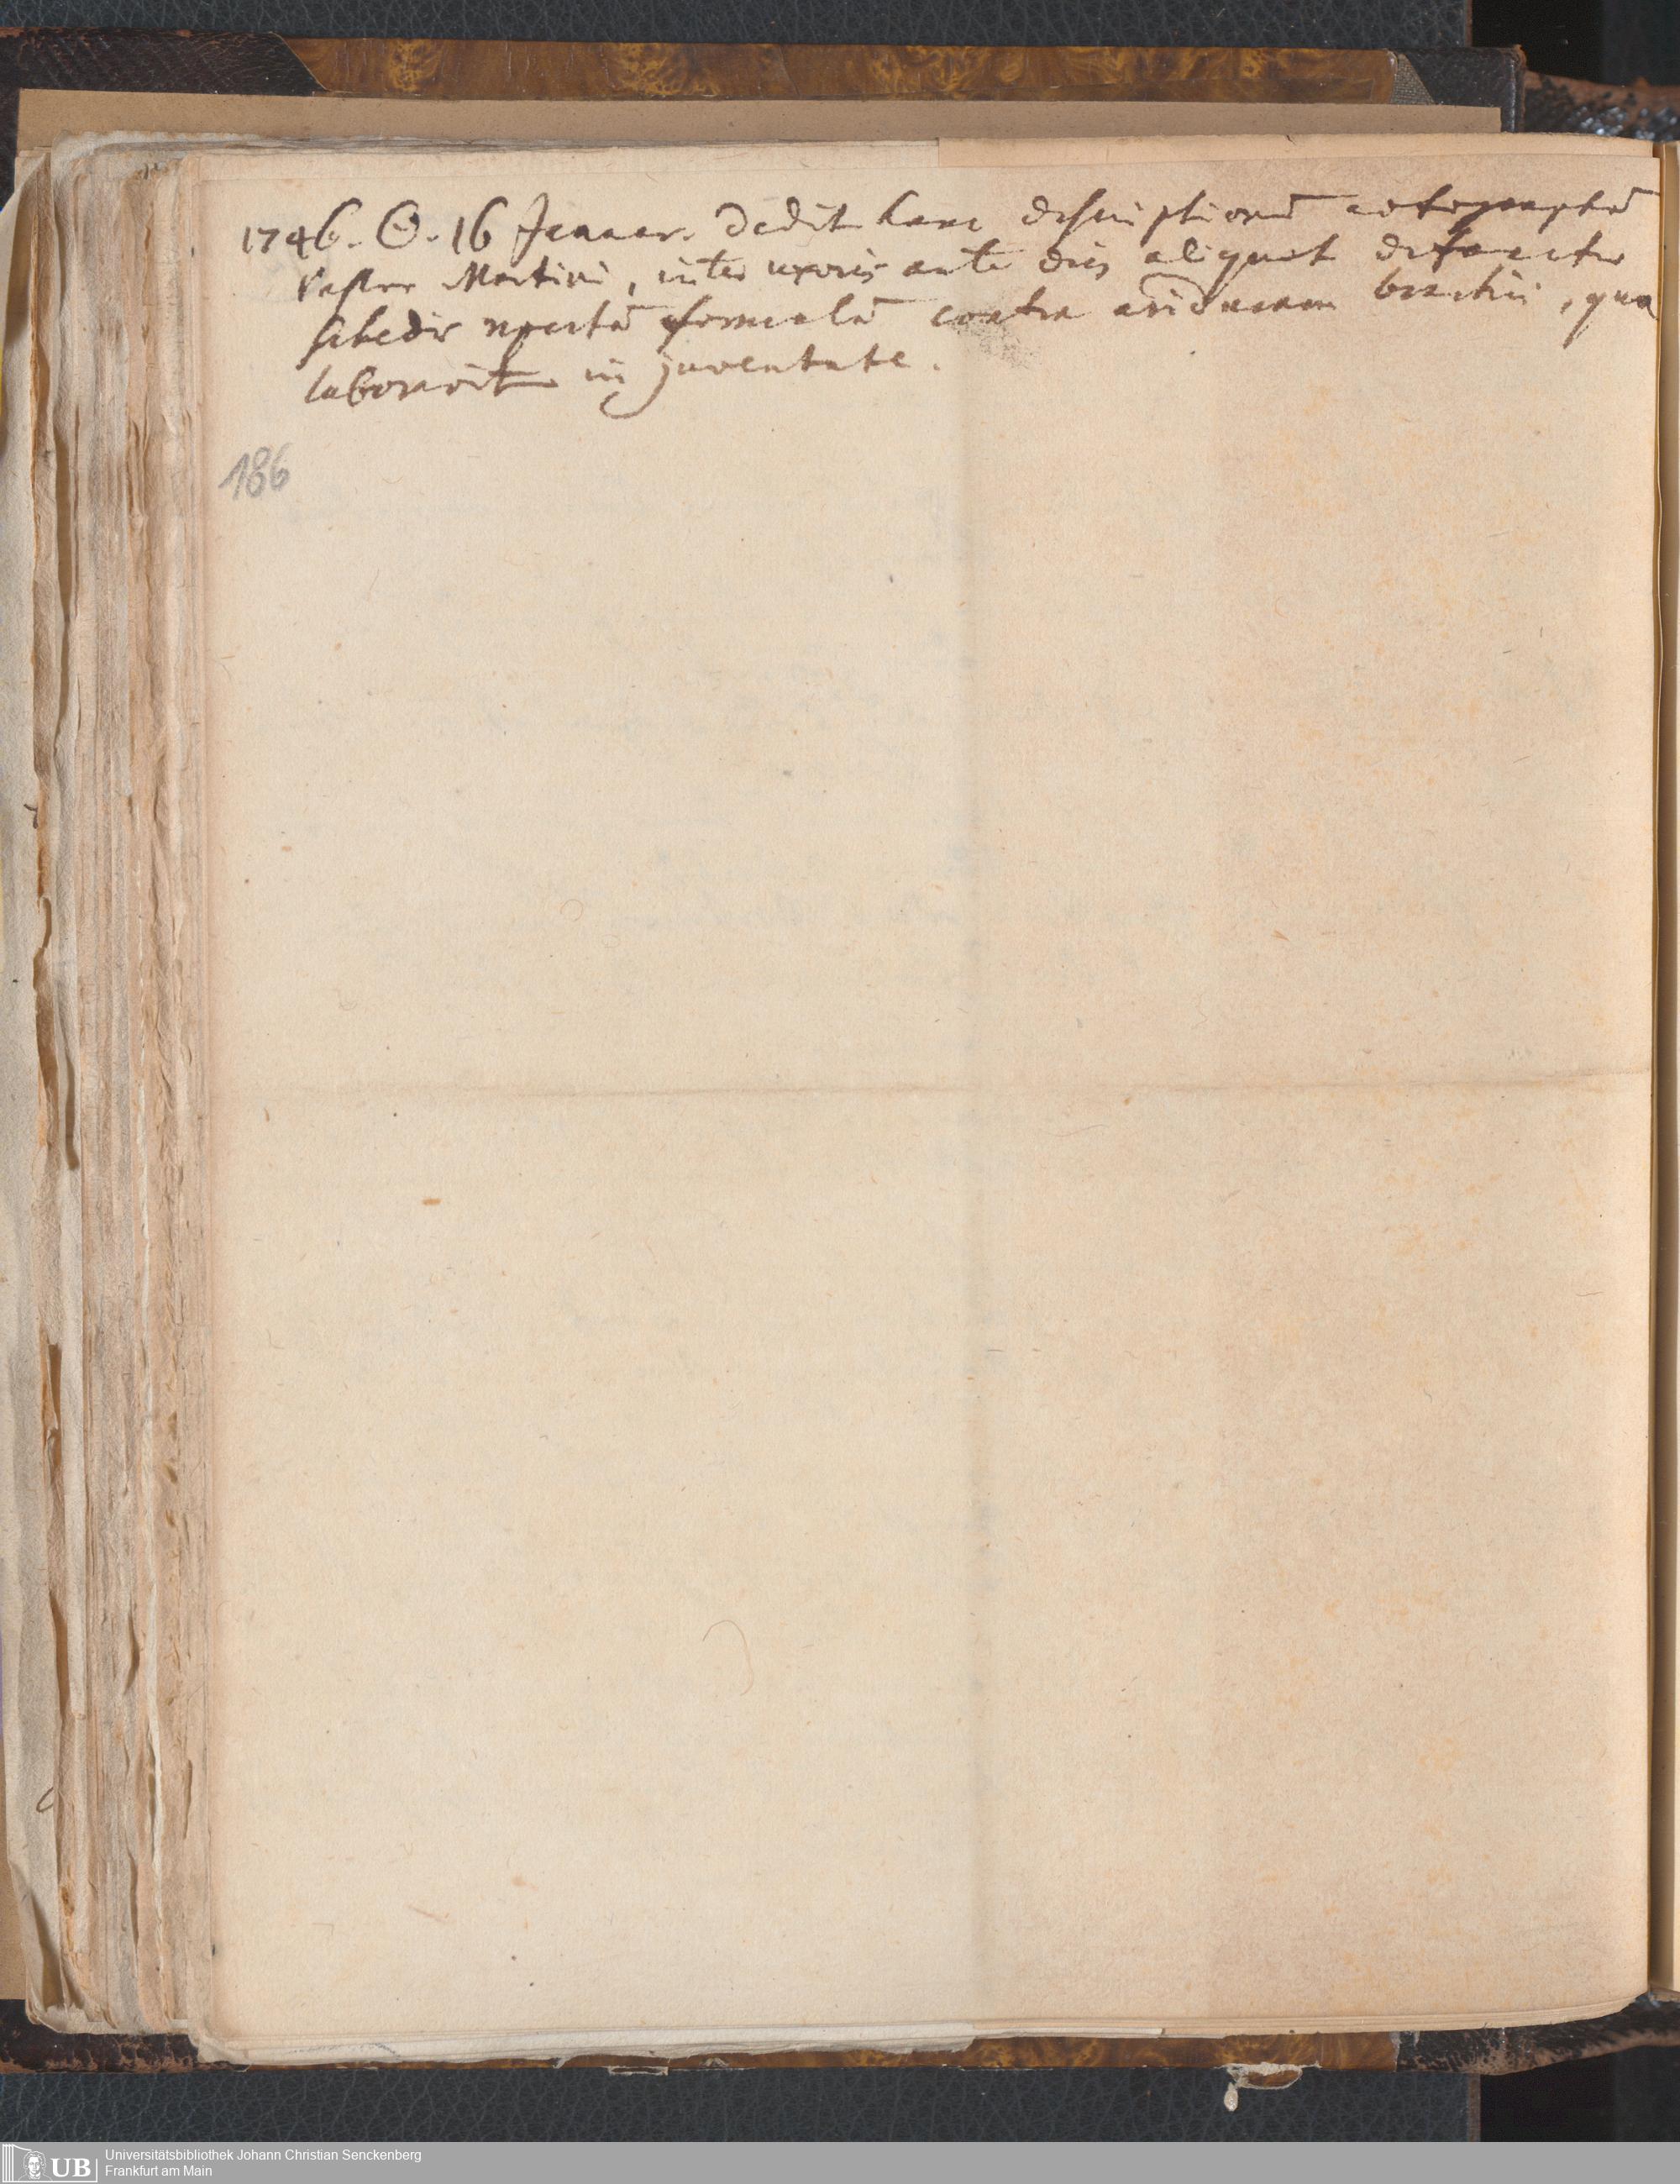 1746. ☉. 16 Januar. dedit hanc descriptionē autographā
Pastor Martini, inter uxoris ante dies aliquot defunctae
schedis repertā formulā contra ariduram brachii, qua
laboravit in juventute.
186
UB Universitätsbibliothek Johann Christian Senckenberg
Frankfurt am Main